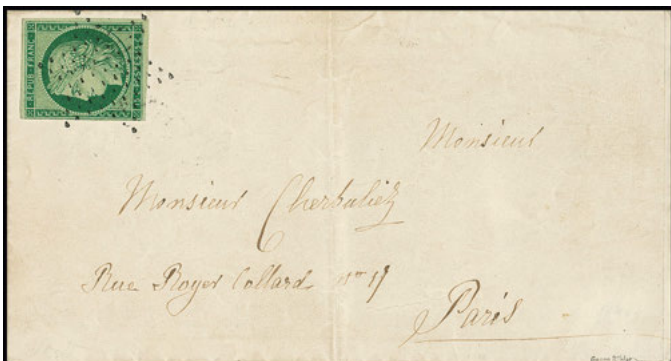 REPUB. FRANC.
Monsieur
Monsieur Cherbuliez
Rue Royer Collard n° 17
Paris